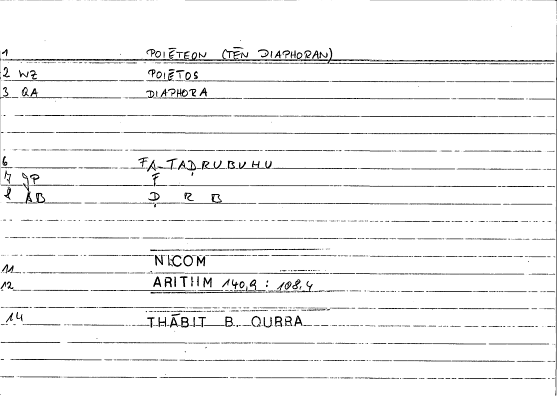 1 POIĒTEON (TĒN DIAPHORAN)
2 WZ POIĒTOS
3 QA DIAPHORA
6 FA-TAḌRUBUHU
7 JP F
8 AB Ḍ R B
11 NICOM
12 ARITHM 140,9 : 108,4
14 THĀBIT B. QURRA